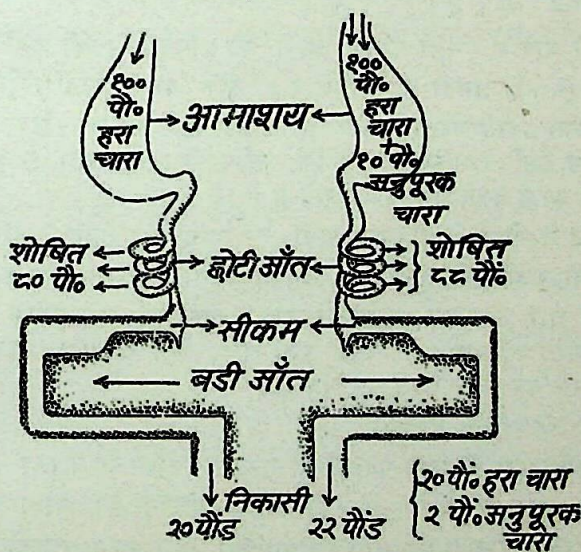 १००
पौ०
हरा
चारा
१००
पौ०
हरा
चारा
+
१० पौ०
सन्रुपूरक
चारा
आमाशय
शोषित
८० पौ०
छोटी आँत
शोषित
८८ पौं
सीकम
बडी आँत
निकासी
२० पौंड
२२ पौंड
२० पौं० हरा चारा
२ पौं० सन्रुपूरक
चारा